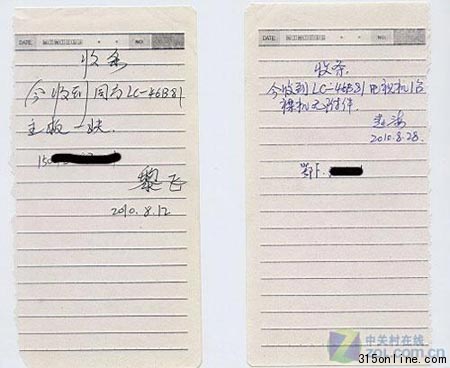 DATE
NO:
收条
今收到周为LC-46B81
主板一块.
150
黎飞
2010.8.12
DATE
NO:
收条.
今收到LC-46B81电视机1台
裸机无附件.
2010.8.28.
中关村在线
zol.com.cn
315online.com